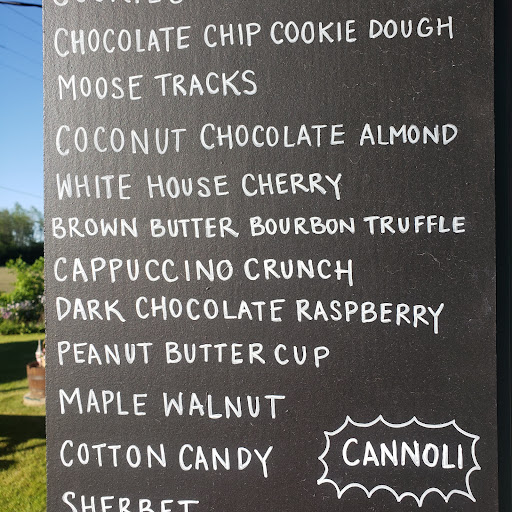 CHOCOLATE CHIP COOKIE DOUGH
MOOSE TRACKS
COCONUT CHOCOLATE ALMOND
WHITE HOUSE CHERRY
BROWN BUTTER BOURBON TRUFFLE
CAPPUCCINO CRUNCH
DARK CHOCOLATE RASPBERRY
PEANUT BUTTER CUP
MAPLE WALNUT
COTTON CANDY
CANNOLI
SHERBET